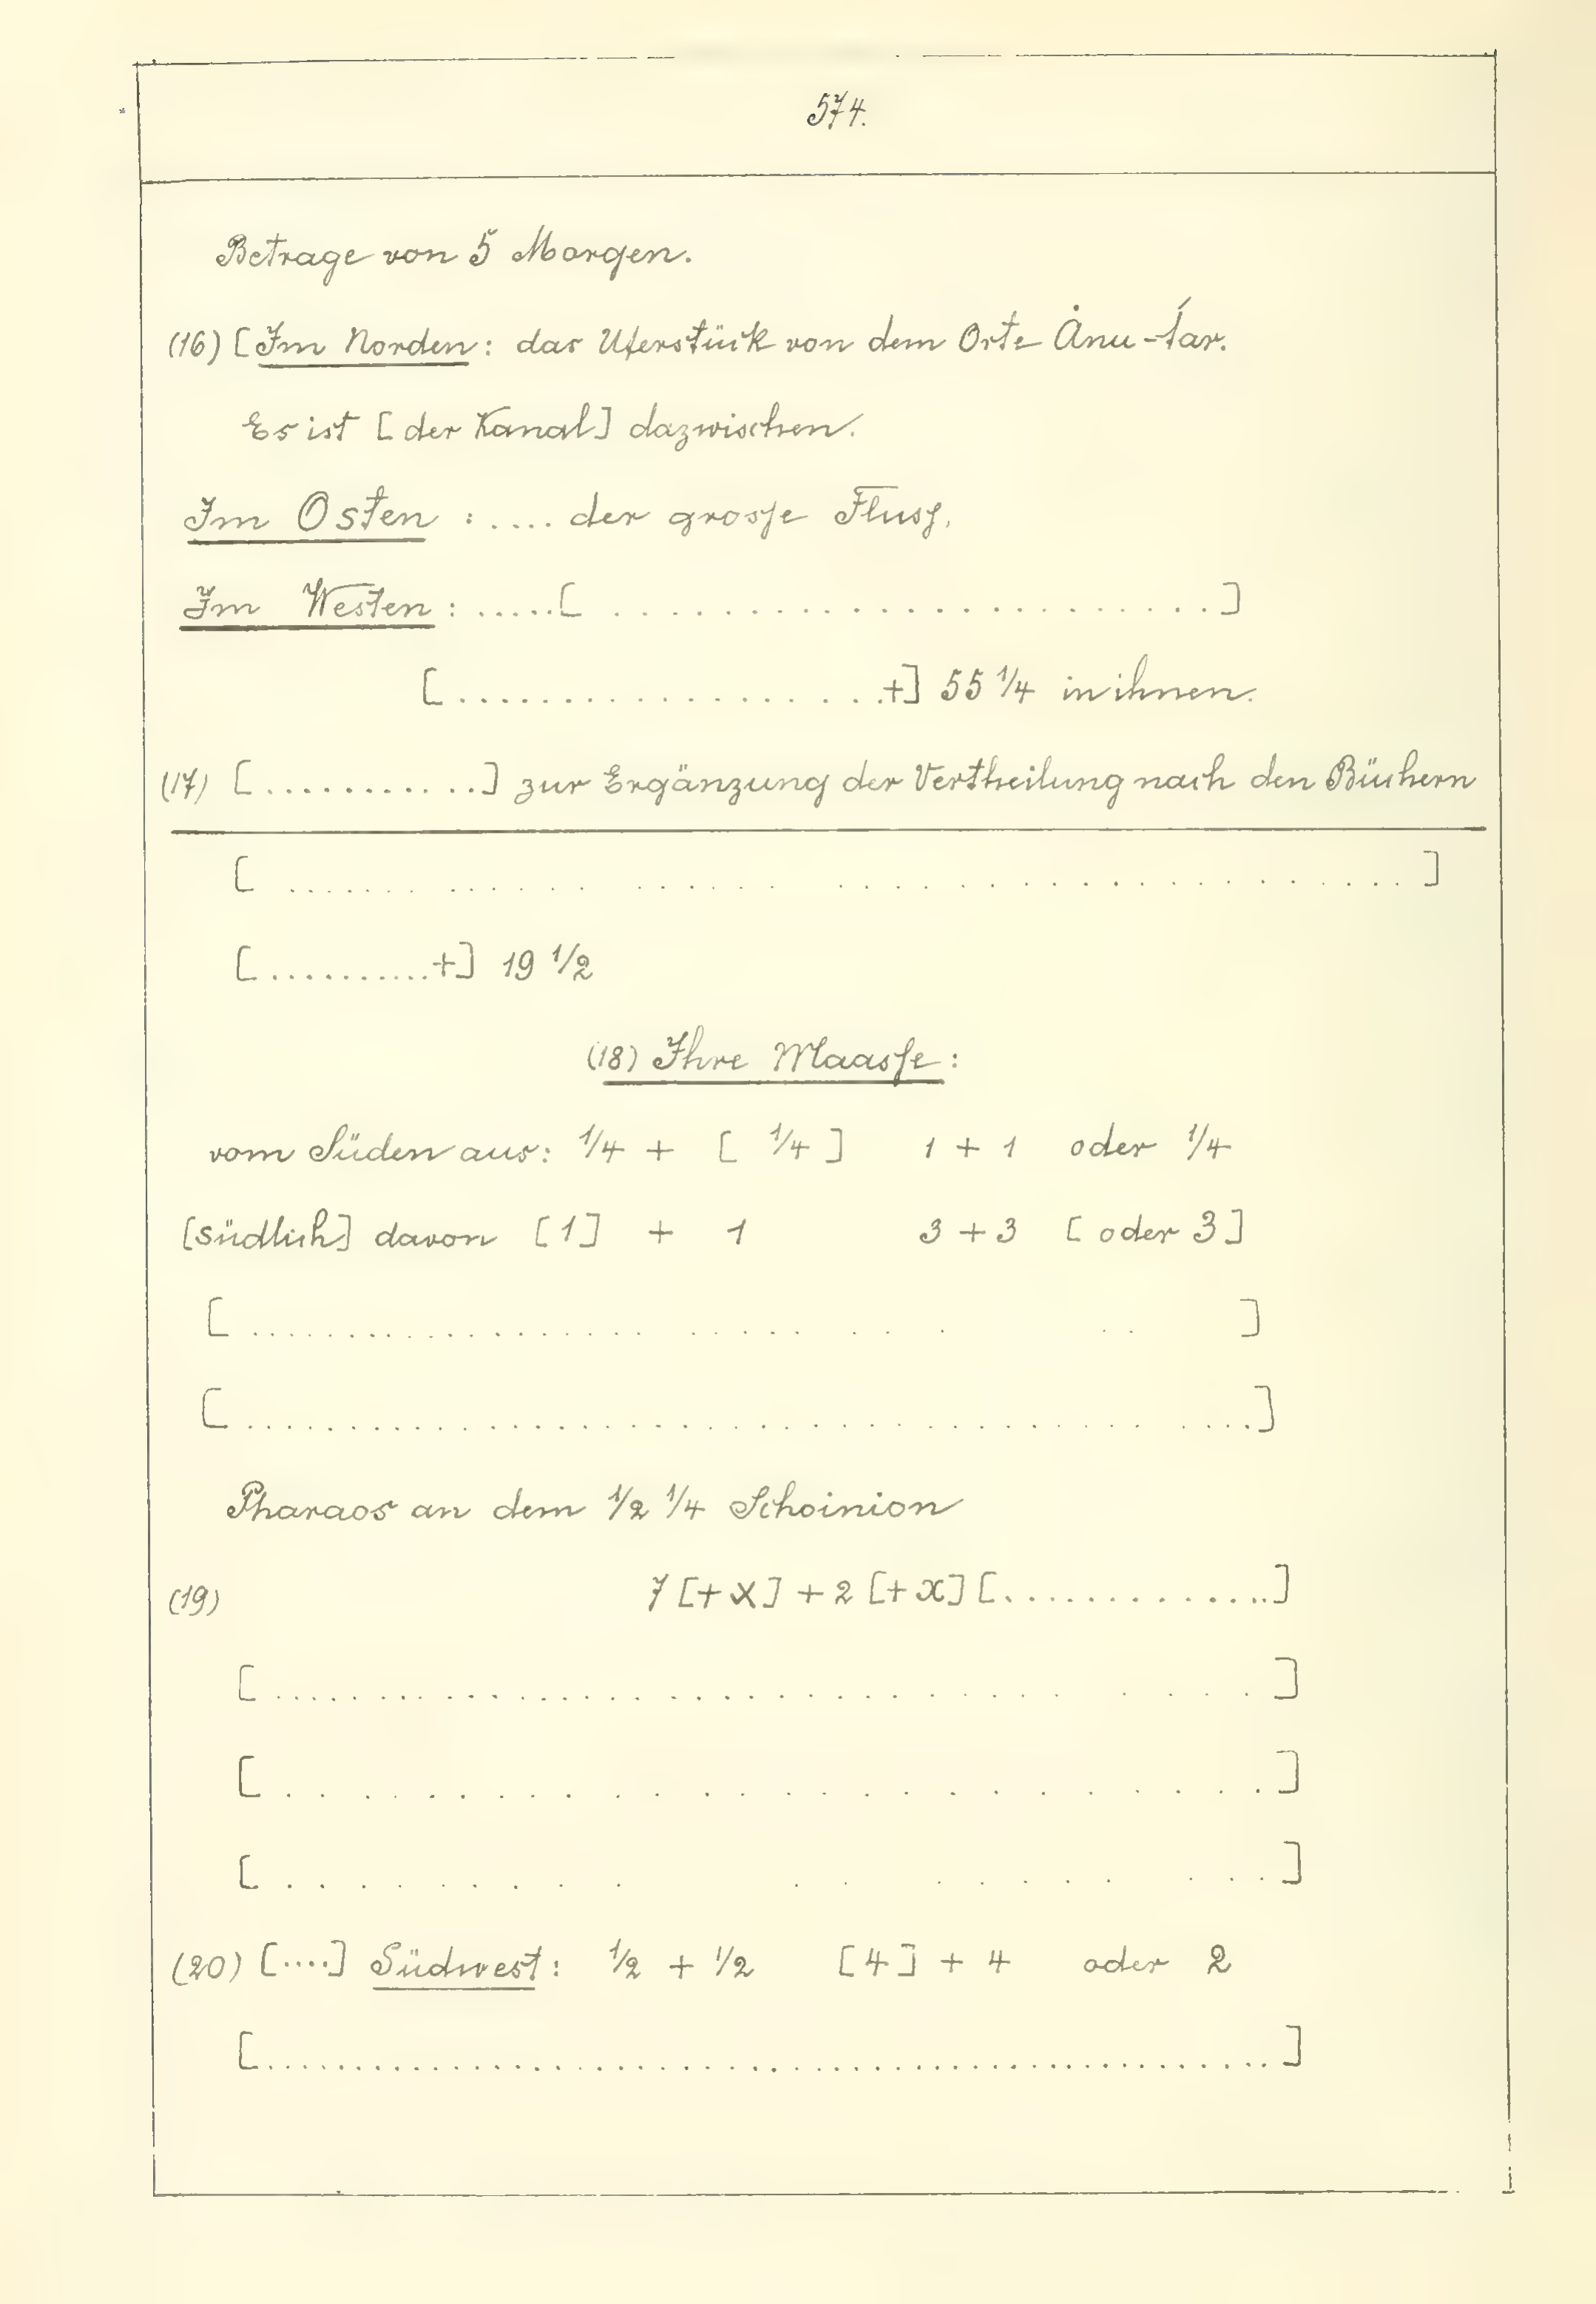 574.
Betrage von 5 Morgen.
(16) [Im Norden: das Uferstück von dem Orte Ȧnu-tar.
Es ist [der Kanal] dazwischen.
Im Osten : .... der grosse Fluss.
Im Westen : .....[ ........................]
[...................+] 55 1/4 in ihnen.
(17) [............] zur Ergänzung der Vertheilung nach den Büchern
[ ........................................ ]
[..........+] 19 1/2
(18) Ihre Maasse:
vom Süden aus: 1/4 + [ 1/4 ] 1 + 1 oder 1/4
[südlich] davon [1] + 1 3 + 3 [oder 3]
[ .............................. ]
[........................................]
Pharaos an dem 1/2 1/4 Schoinion
(19) 7 [+x] + 2 [+x] [..............]
[........................................]
[........................................]
[........................................]
(20) [....] Südwest: 1/2 + 1/2 [4] + 4 oder 2
[..................................................]